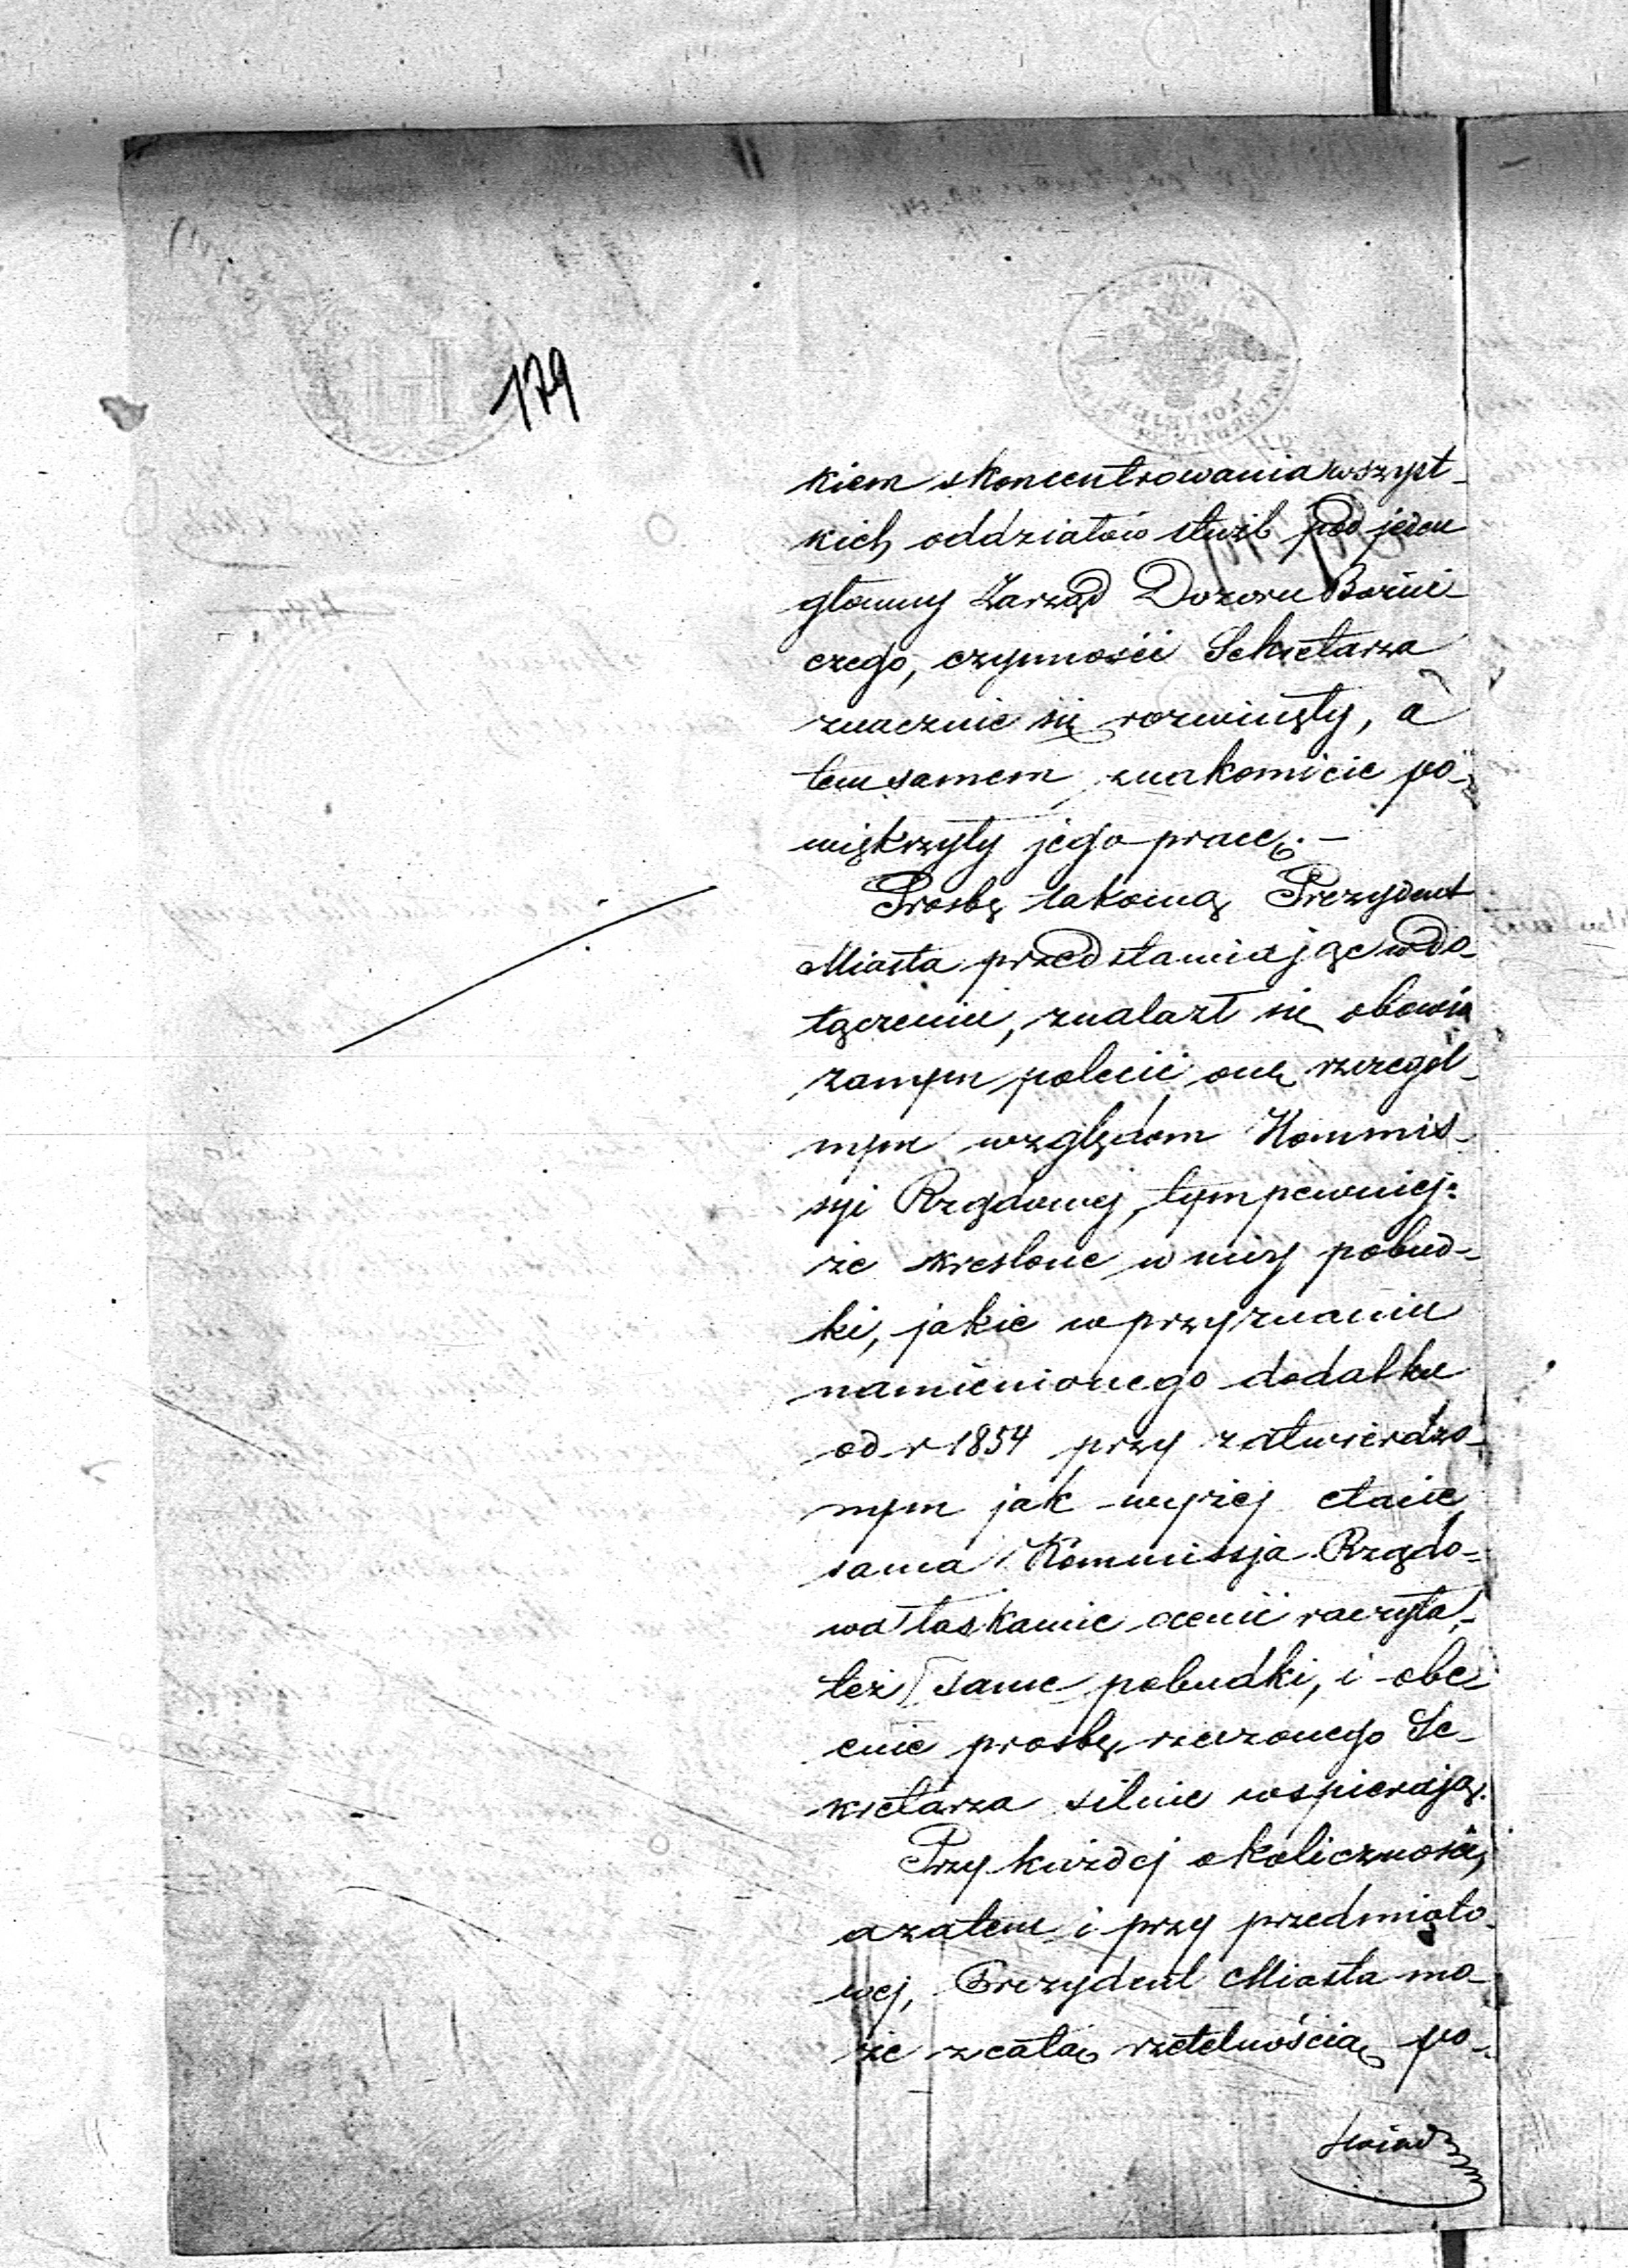 179
kiem skoncentrowania wszyst-
kich oddziałów służb pod jeden
główny Zarząd Dozoru Bożni-
czego, czynności Sekretarza
znacznie się rozwinęły, a
tem samem znakomicie po-
większyły jego pracę.-
Prośbę takową Prezydent
Miasta przedstawiając w do-
łączeniu, znalazł się obowią
zanym polecić onę szczegól-
nym względom Kommis-
syi Rządowej, tym pewniej:
że skreślone w niej pobud-
ki, jakie w przyznaniu
namienionego dodatku
od r 1854 przy zatwierdzo-
nym jak wyżej etacie
sama Kommissja Rządo-
wa łaskawie ocenić raczyła,-
też same pobudki, i obe
cnie prośbę rzeczonego Se-
kretarza silnie wspierają.
Przy każdej okoliczności,
a zatem i przy przedmioto-
wej, Prezydent Miasta mo-
że z całą rzetelnością po-
świad